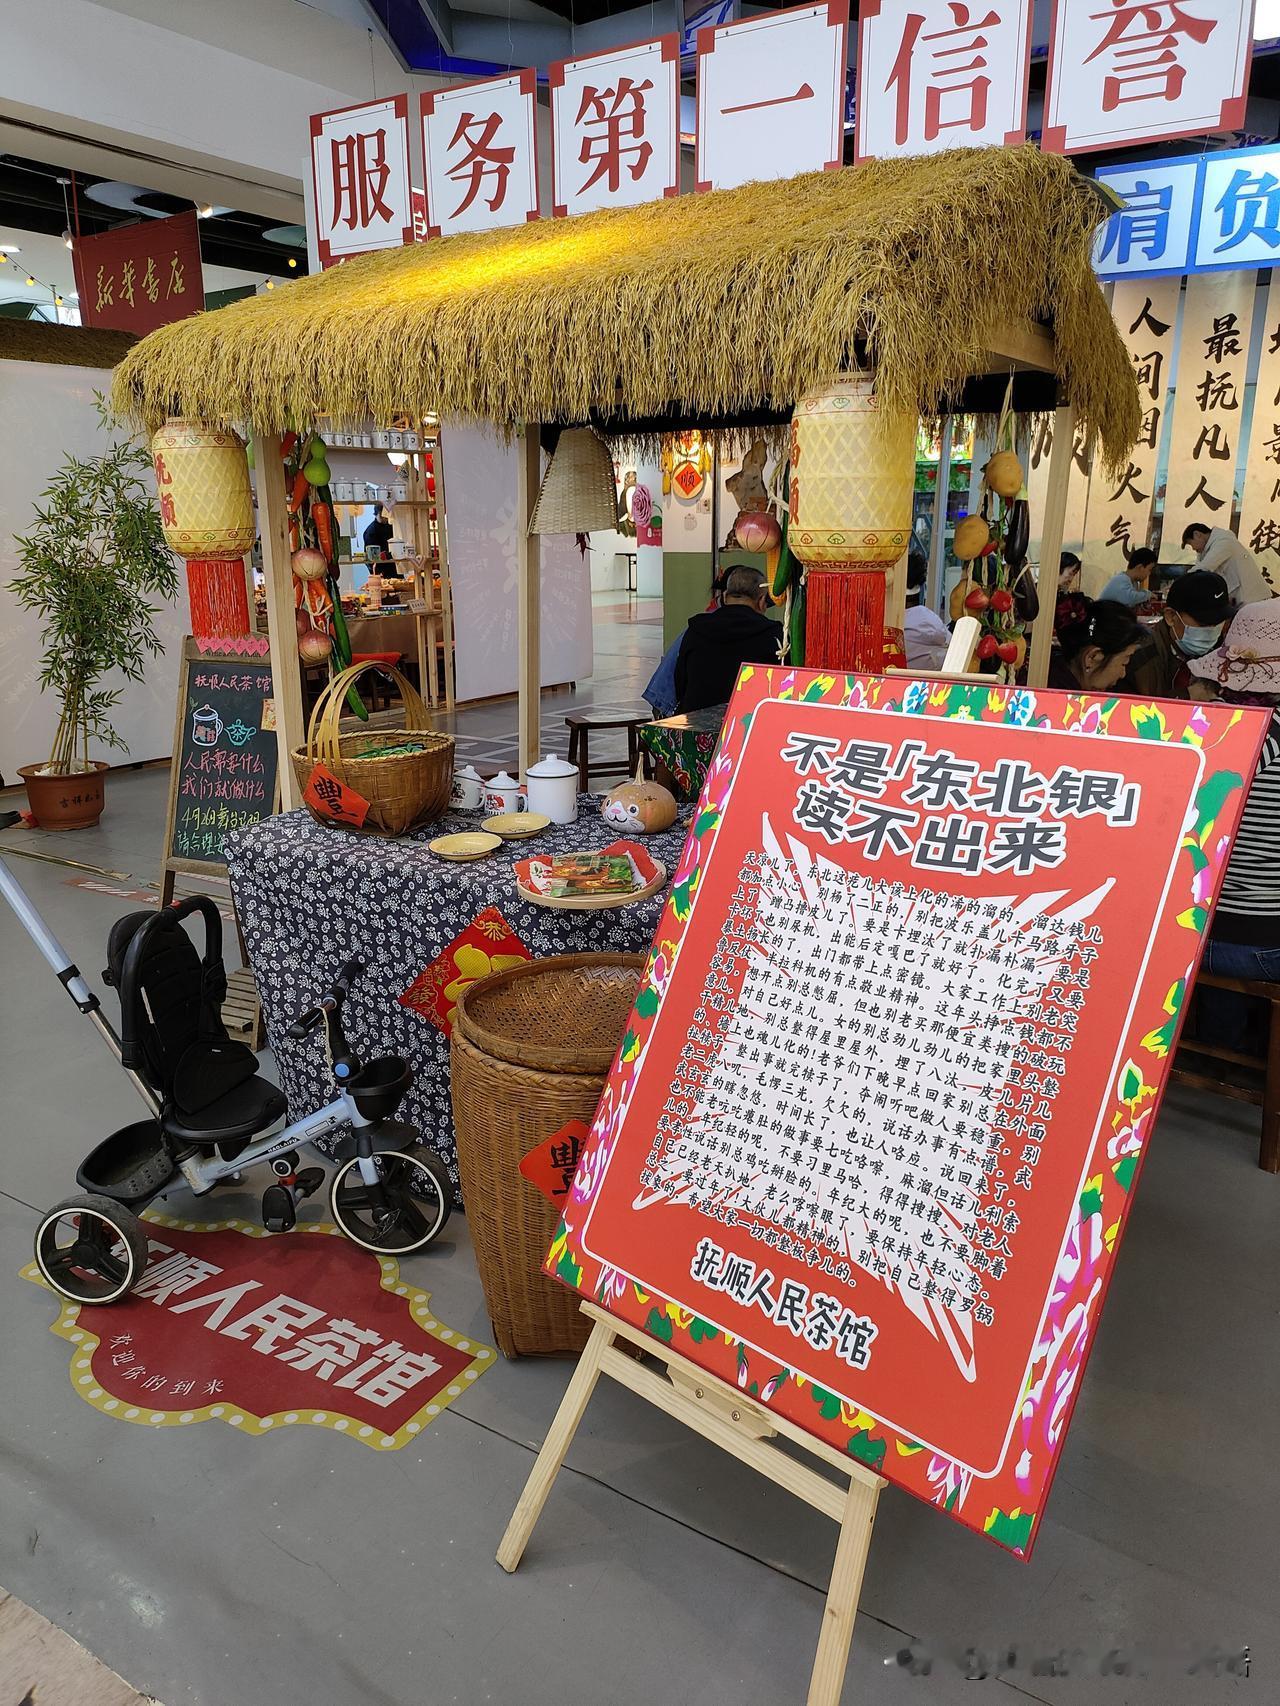 服务第一信誉
肩负
新华书店
人间烟火气
最抚凡人
抚顺
抚顺人民茶馆
人民需要什么
我们就做什么
豐
吉祥
不是「东北银」
读不出来
天凉儿了。东北这疙儿大馇上化的浠的溜的，溜达钱儿
都加点小心，别杨了二正的，别把波乐盖儿卡马路牙子
上了，蹭凸捞皮儿了。要是卡埋汰了就扑漏扑漏，要是
卡坏了也别尿机，出能后定嘎巴了就好了。化完了又要
暴土扬长的了，出门都带上点密镜。大家工作上别老突
鲁反仗，半拉科机的有点敬业精神。这年头挣点钱都不
容易，想开点别总憋屈，但也别老买那便宜类搜的破玩
意儿，对自己好点儿。女的别总劲儿劲儿的把家里头整
干精儿地，别总整得屋里屋外，埋了八汰，皮儿片儿
的、墙上也魂儿化的！老爷们下晚早点回家别总在外面
扯犊子，整出事就完犊子了，夯闹听吧做人要稳重，别
老二虎八叽，毛愣三光，欠欠的，说话办事有点谱，武
武玄玄的瞎忽悠，时间长了，也让人咯应。说回来了，
也不能老吭吃瘪肚的做事要七吃咯嚓，麻溜但话儿利索
儿的。年纪轻的呢，不要习里马哈，得得搜搜，对老人
要孝性说话别总鸡吃掰脸的，年纪大的呢，也不要脚着
自己已经老天扒地，老么喀嚓眼了，要保持年轻心态。
总之，要过年了大伙儿都精神的，别把自己整得罗锅
拔象的，希望大家一切都整板争儿的。
抚顺人民茶馆
豐
顺人民茶馆
欢迎你的到来